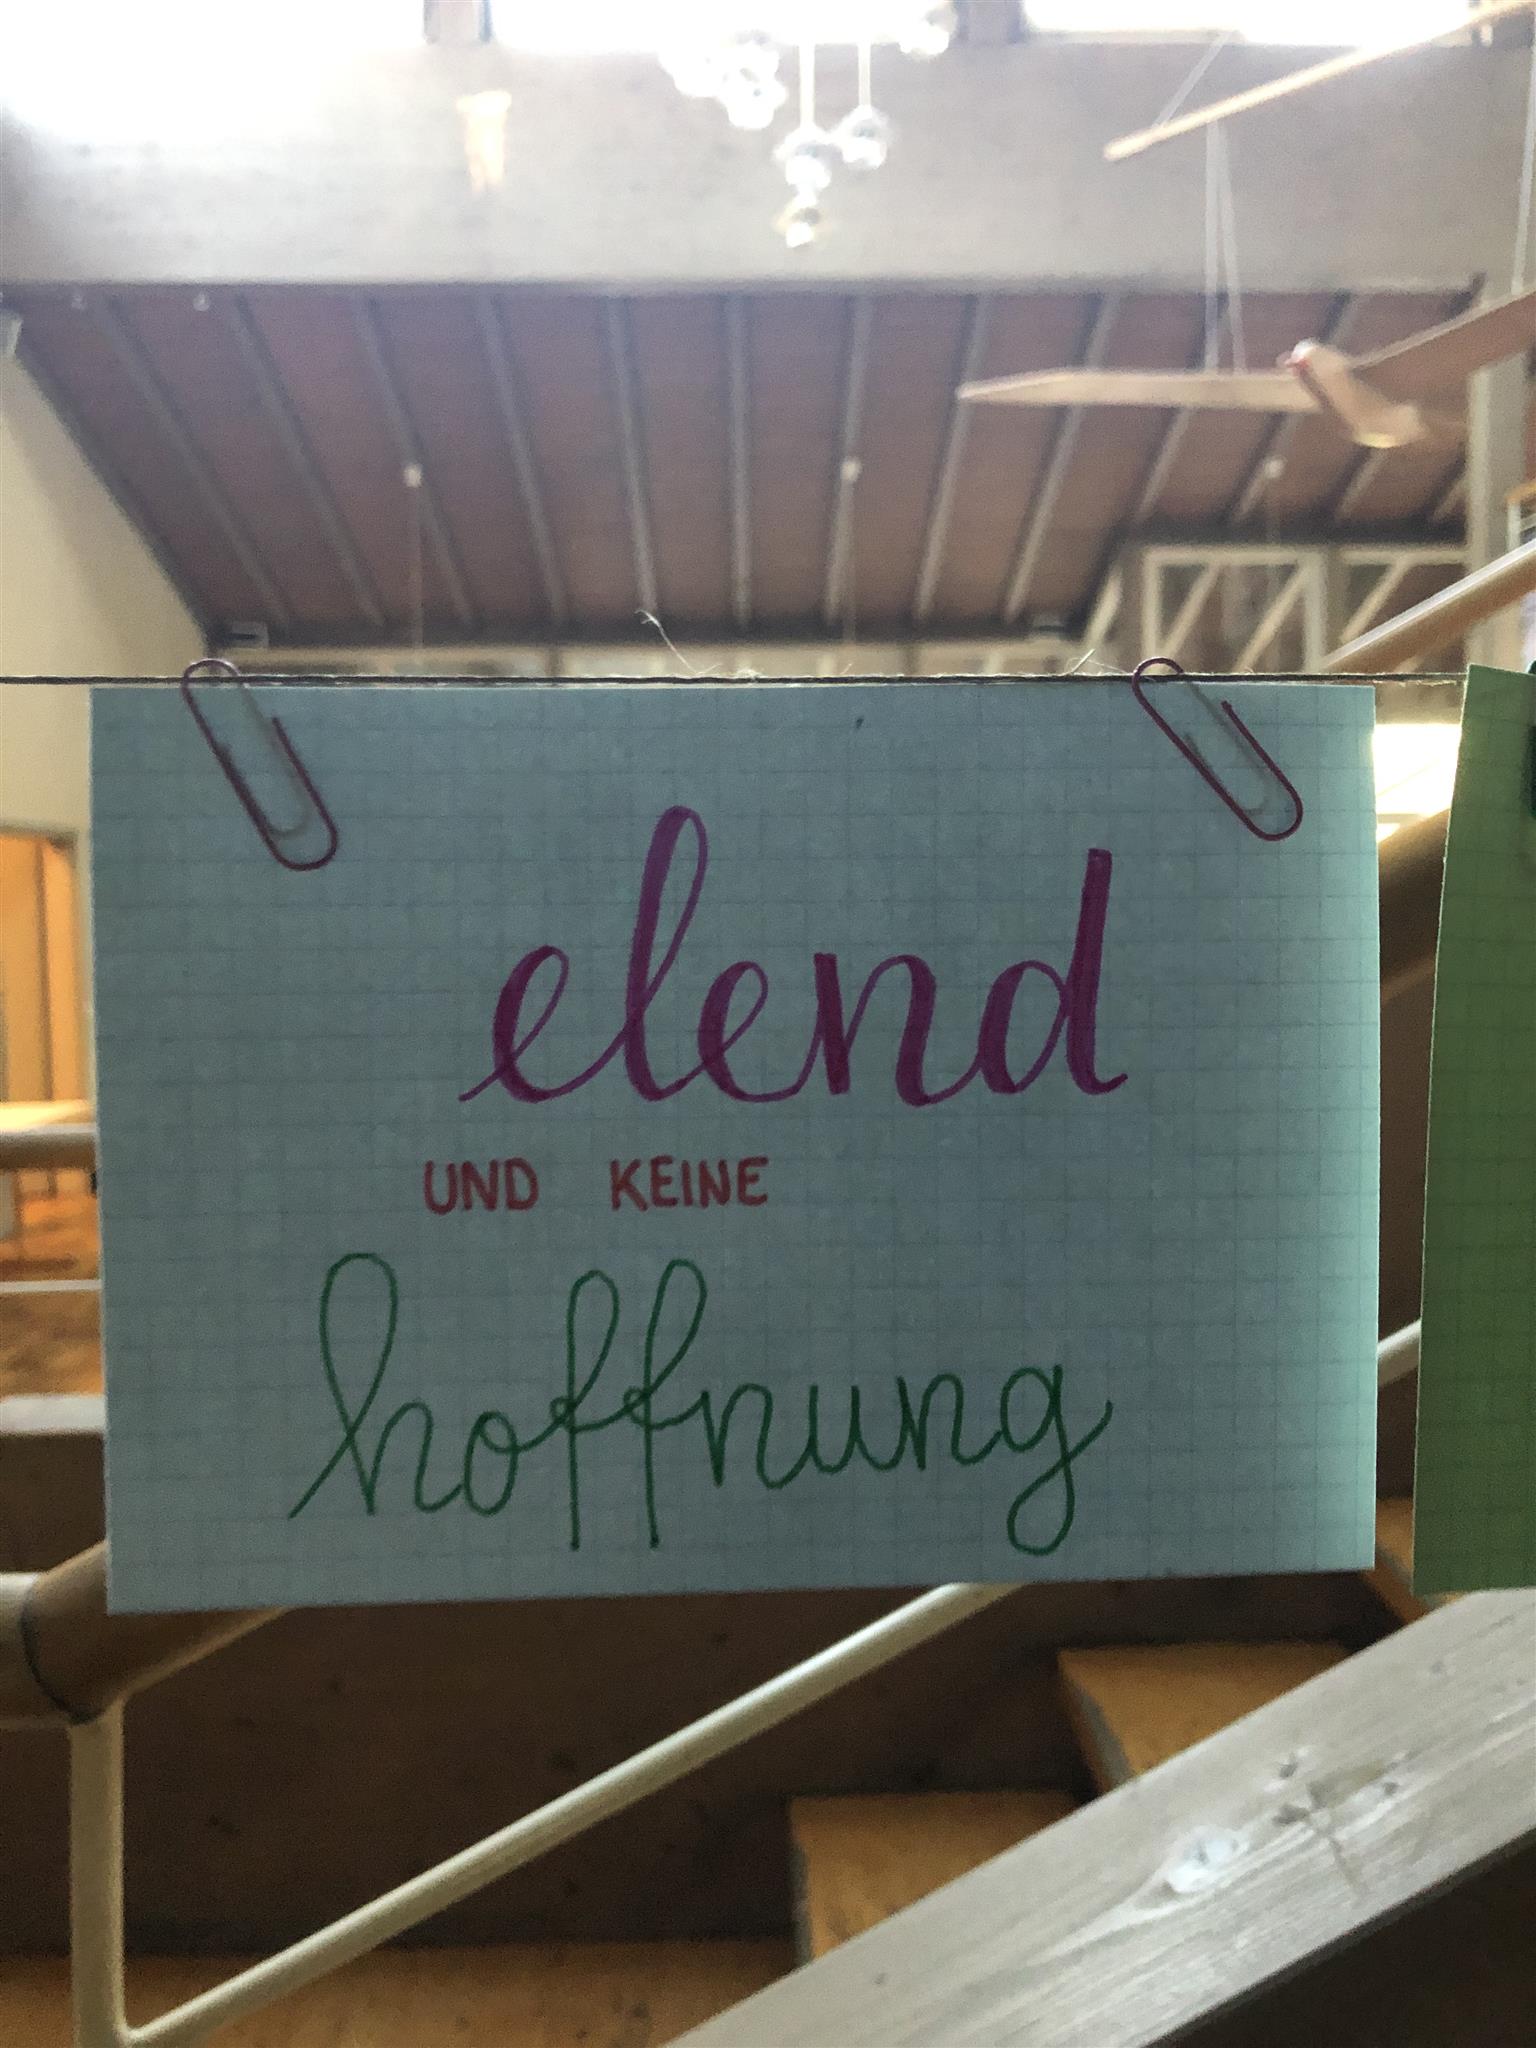 elend
UND KEINE
hoffnung